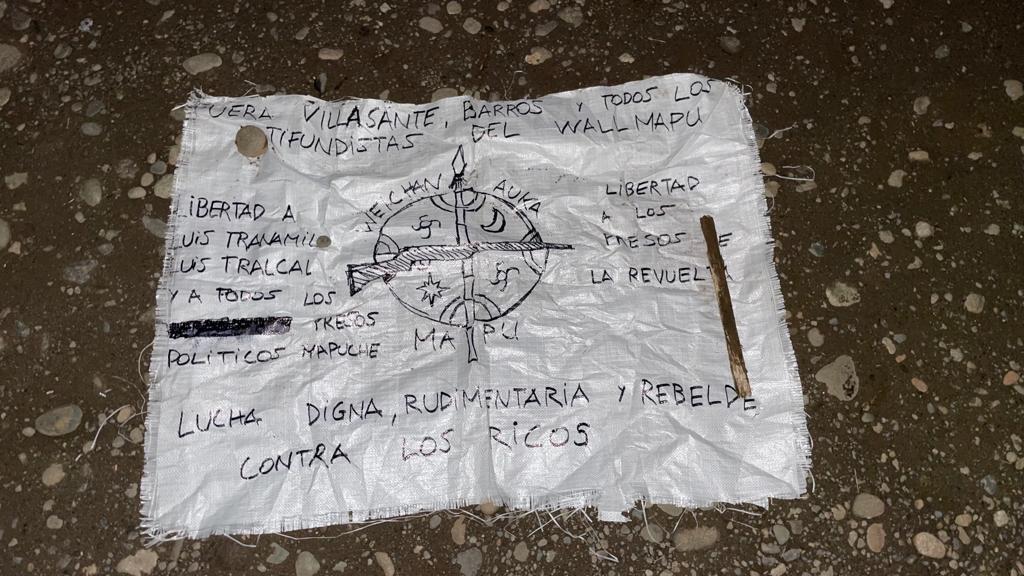 UERA VILLASANTE, BARROS Y TODOS LOS
TIFUNDISTAS DEL WALLMAPU
LIBERTAD A
LUIS TRANAMIL
LUIS TRALCAL
Y A TODOS LOS
PRESOS
POLITICOS MAPUCHE
WEICHAN AUKA
MAPU
LIBERTAD
A LOS
PRESOS DE
LA REVUELTA
LUCHA DIGNA, RUDIMENTARIA Y REBELDE
CONTRA LOS RICOS